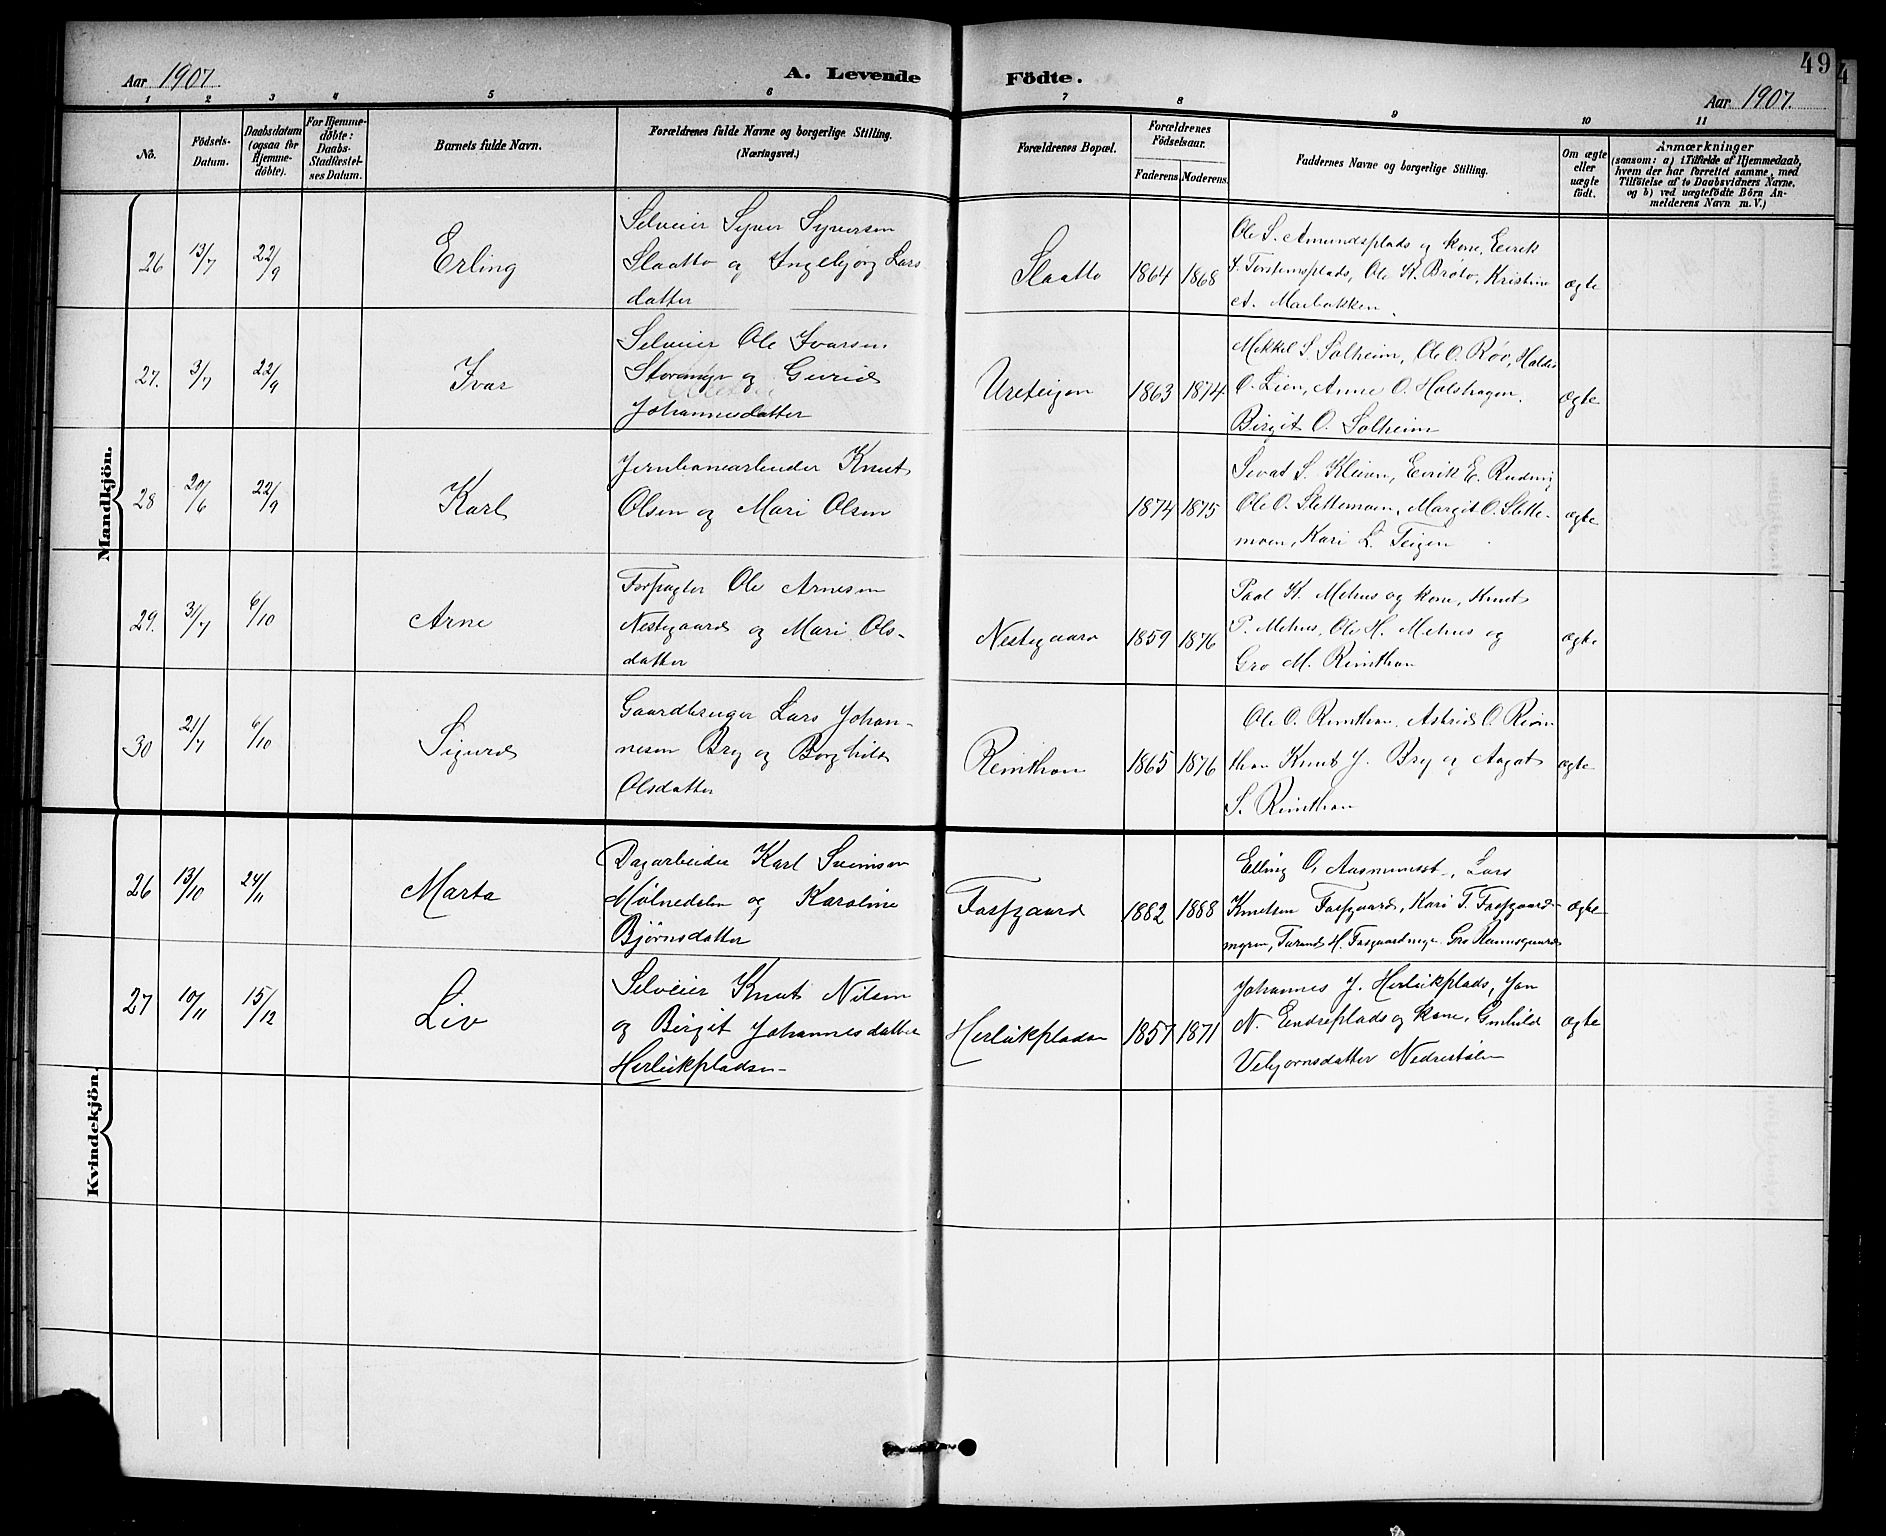 49
Aar 1907.
A. Levende Födte.
Aar 1907.
1 2 3 4 5 6 7 8 9 10 11
No.
Födsels-
Datum.
Daabsdatum
(ogsaa for
Hjemme-
døbte).
For Hjemme-
døbte:
Daabs-
Stadfæstel-
ses Datum.
Barnets fulde Navn.
Forældrenes fulde Navne og borgerlige Stilling.
(Næringsvei.)
Forældrenes Bopæl.
Forældrenes
Födselsaar.
Faderens. Moderens.
Faddernes Navne og borgerlige Stilling.
Om ægte
eller
uægte
født.
Anmærkninger
(saasom: a) i Tilfælde af Hjemmedaab,
hvem der har forrettet samme, med
Tilföielse af to Daabsvidners Navne,
og b) ved uægtefödte Börn An-
melderens Navn m. V.)
Mandkjön.
26 13/7 22/9 Erling
Selveier Syver Syversen
Slaatto og Ingebjørg Lars-
datter
Slaatto 1864 1868
Ole S. Amundsplads og kone, Eirik
S. Torstensplads, Ole K. Bröto, Kristine
A. Marbakken.
ægte
27. 3/7 22/9 Ivar
Selveier Ole Ivarsen
og Gurid
Johannesdatter
Ureteigen 1863 1874.
Mekkel S. Solheim, Ole O. Röv,
O. Lien, Anne O. Holshagen.
Birgit O. Solheim
ægte
28 20/6 22/9 Karl
Jernbanearbeider Knut
Olsen og Mari Olsen
1874 1875
Sevat S. Kleiven, Eirik E. Rudni
Ole O. Slettemoen, Margit O. Slette-
moen, Kari L. Teigen
ægte
29. 31/7 6/10 Arne
Forpagter Ole Arnesen
Nestegaard og Mari Ols-
datter
Nestegaard 1859 1876
Paal K. Mehus og kone, Knut
P. Mehus, Ole H. Mehus og
Gro M. Reinthon
ægte
30 21/7 6/10 Sigurd
Gaardbruger Lars Johan-
nesen Bry og Borghild
Olsdatter
Reinthon 1865 1876
Ole O. Reinthon, Astrid O. Rein
thon Knut J. Bry og Aagot
S. Reinthon
ægte
Kvindekjön.
26 13/10 24/11 Marta
Dagarbeider Karl Sveinsen
Mølnedelen og Karoline
Bjørnsdatter
Fosfgaard 1882 1888
Elling O. Aasmundst., Lars
Knutsen Fosfgaard, Kari T. Fosfgaard-
myren, Turand H. Gro
ægte
27 10/11 15/12 Liv
Selveier Knut Nilsen
og Birgit Johannesdatter
Herleikpladsen
Herleikpladsen 1857 1871
Johannes J. Herleikplads, Jon
N. Eendreplads og kone, Gunhild
Vebjørnsdatter Nedrestølen
ægte